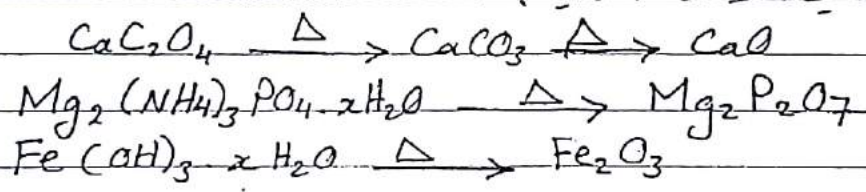 CaC₂O₄ —Δ→ CaCO₃ —Δ→ CaO
Mg₂(NH4)₃PO₄.xH₂O —Δ→ Mg₂P₂O₇
Fe(OH)₃.xH₂O —Δ→ Fe₂O₃